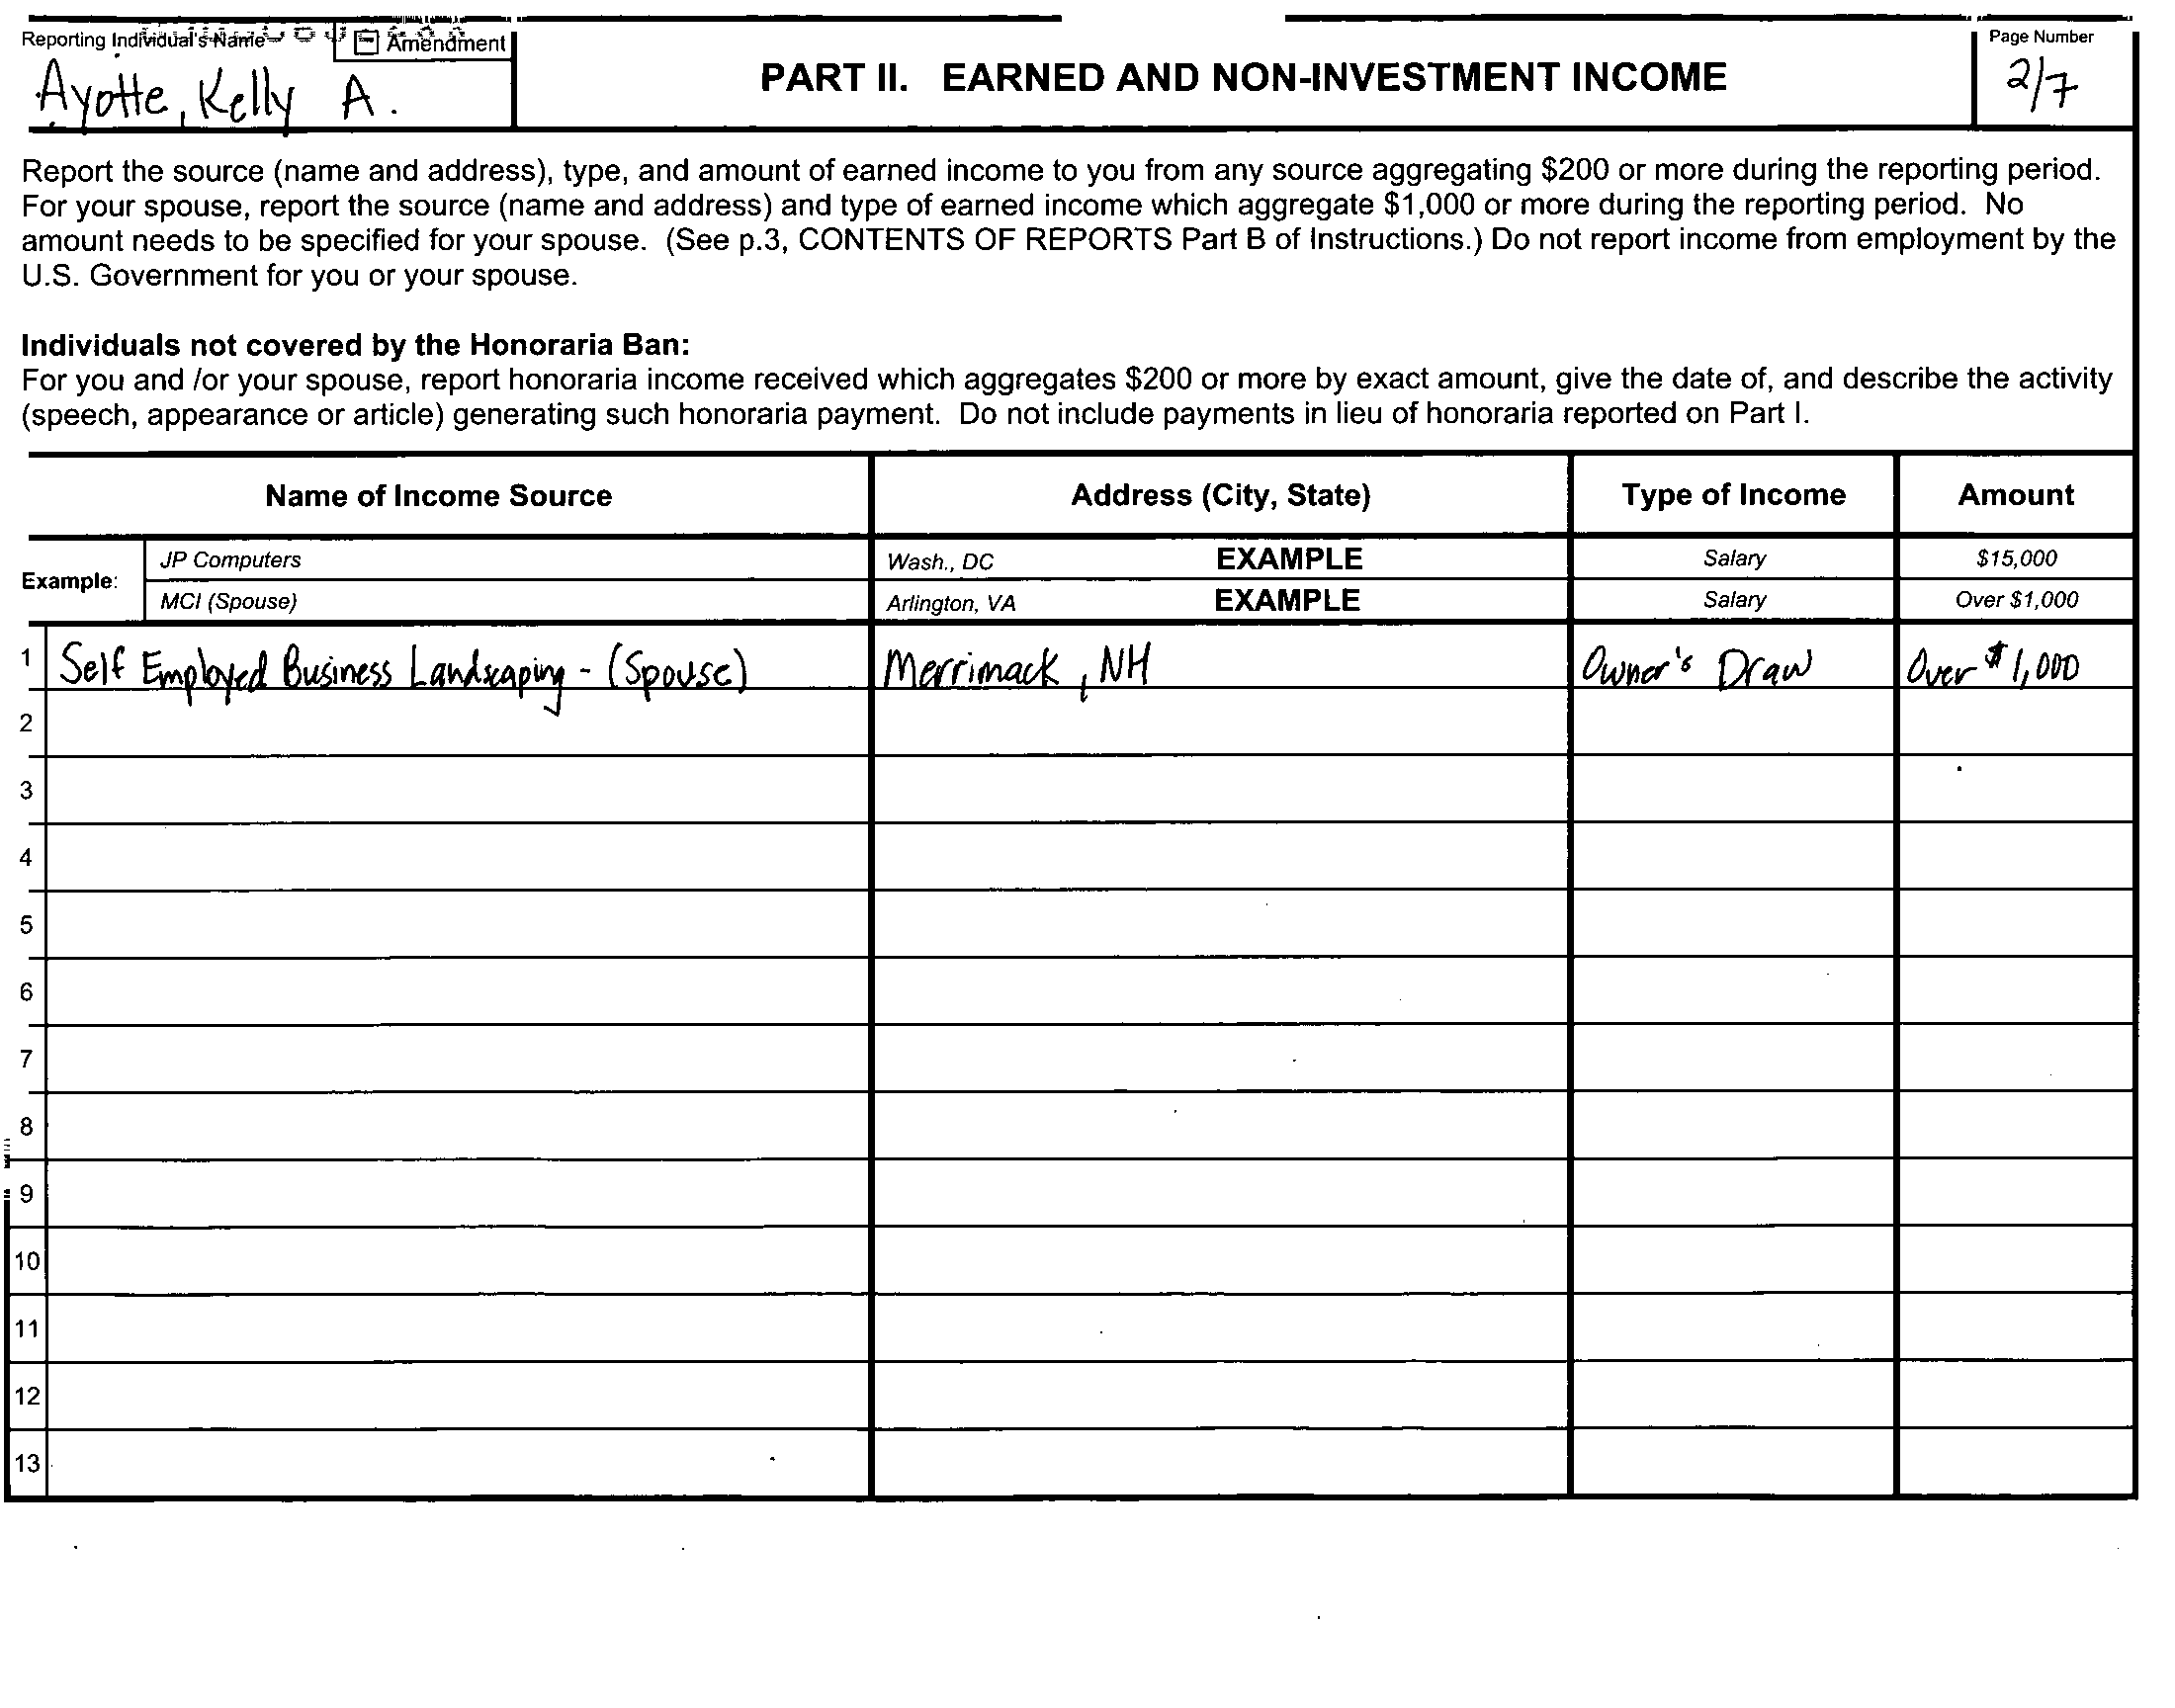 Reporting Individual's Name
Amendment
Ayotte, Kelly A.
PART II. EARNED AND NON-INVESTMENT INCOME
Page Number
2/7
Report the source (name and address), type, and amount of earned income to you from any source aggregating $200 or more during the reporting period.
For your spouse, report the source (name and address) and type of earned income which aggregate $1,000 or more during the reporting period. No
amount needs to be specified for your spouse. (See p.3, CONTENTS OF REPORTS Part B of Instructions.) Do not report income from employment by the
U.S. Government for you or your spouse.
Individuals not covered by the Honoraria Ban:
For you and /or your spouse, report honoraria income received which aggregates $200 or more by exact amount, give the date of, and describe the activity
(speech, appearance or article) generating such honoraria payment. Do not include payments in lieu of honoraria reported on Part I.
Name of Income Source Address (City, State) Type of Income Amount
Example:
JP Computers Wash., DC EXAMPLE Salary $15,000
MCI (Spouse) Arlington, VA EXAMPLE Salary Over $1,000
1 Self Employed Business Landscaping - (Spouse) Merrimack, NH Owner's Draw Over $1,000
2
3
4
5
6
7
8
9
10
11
12
13